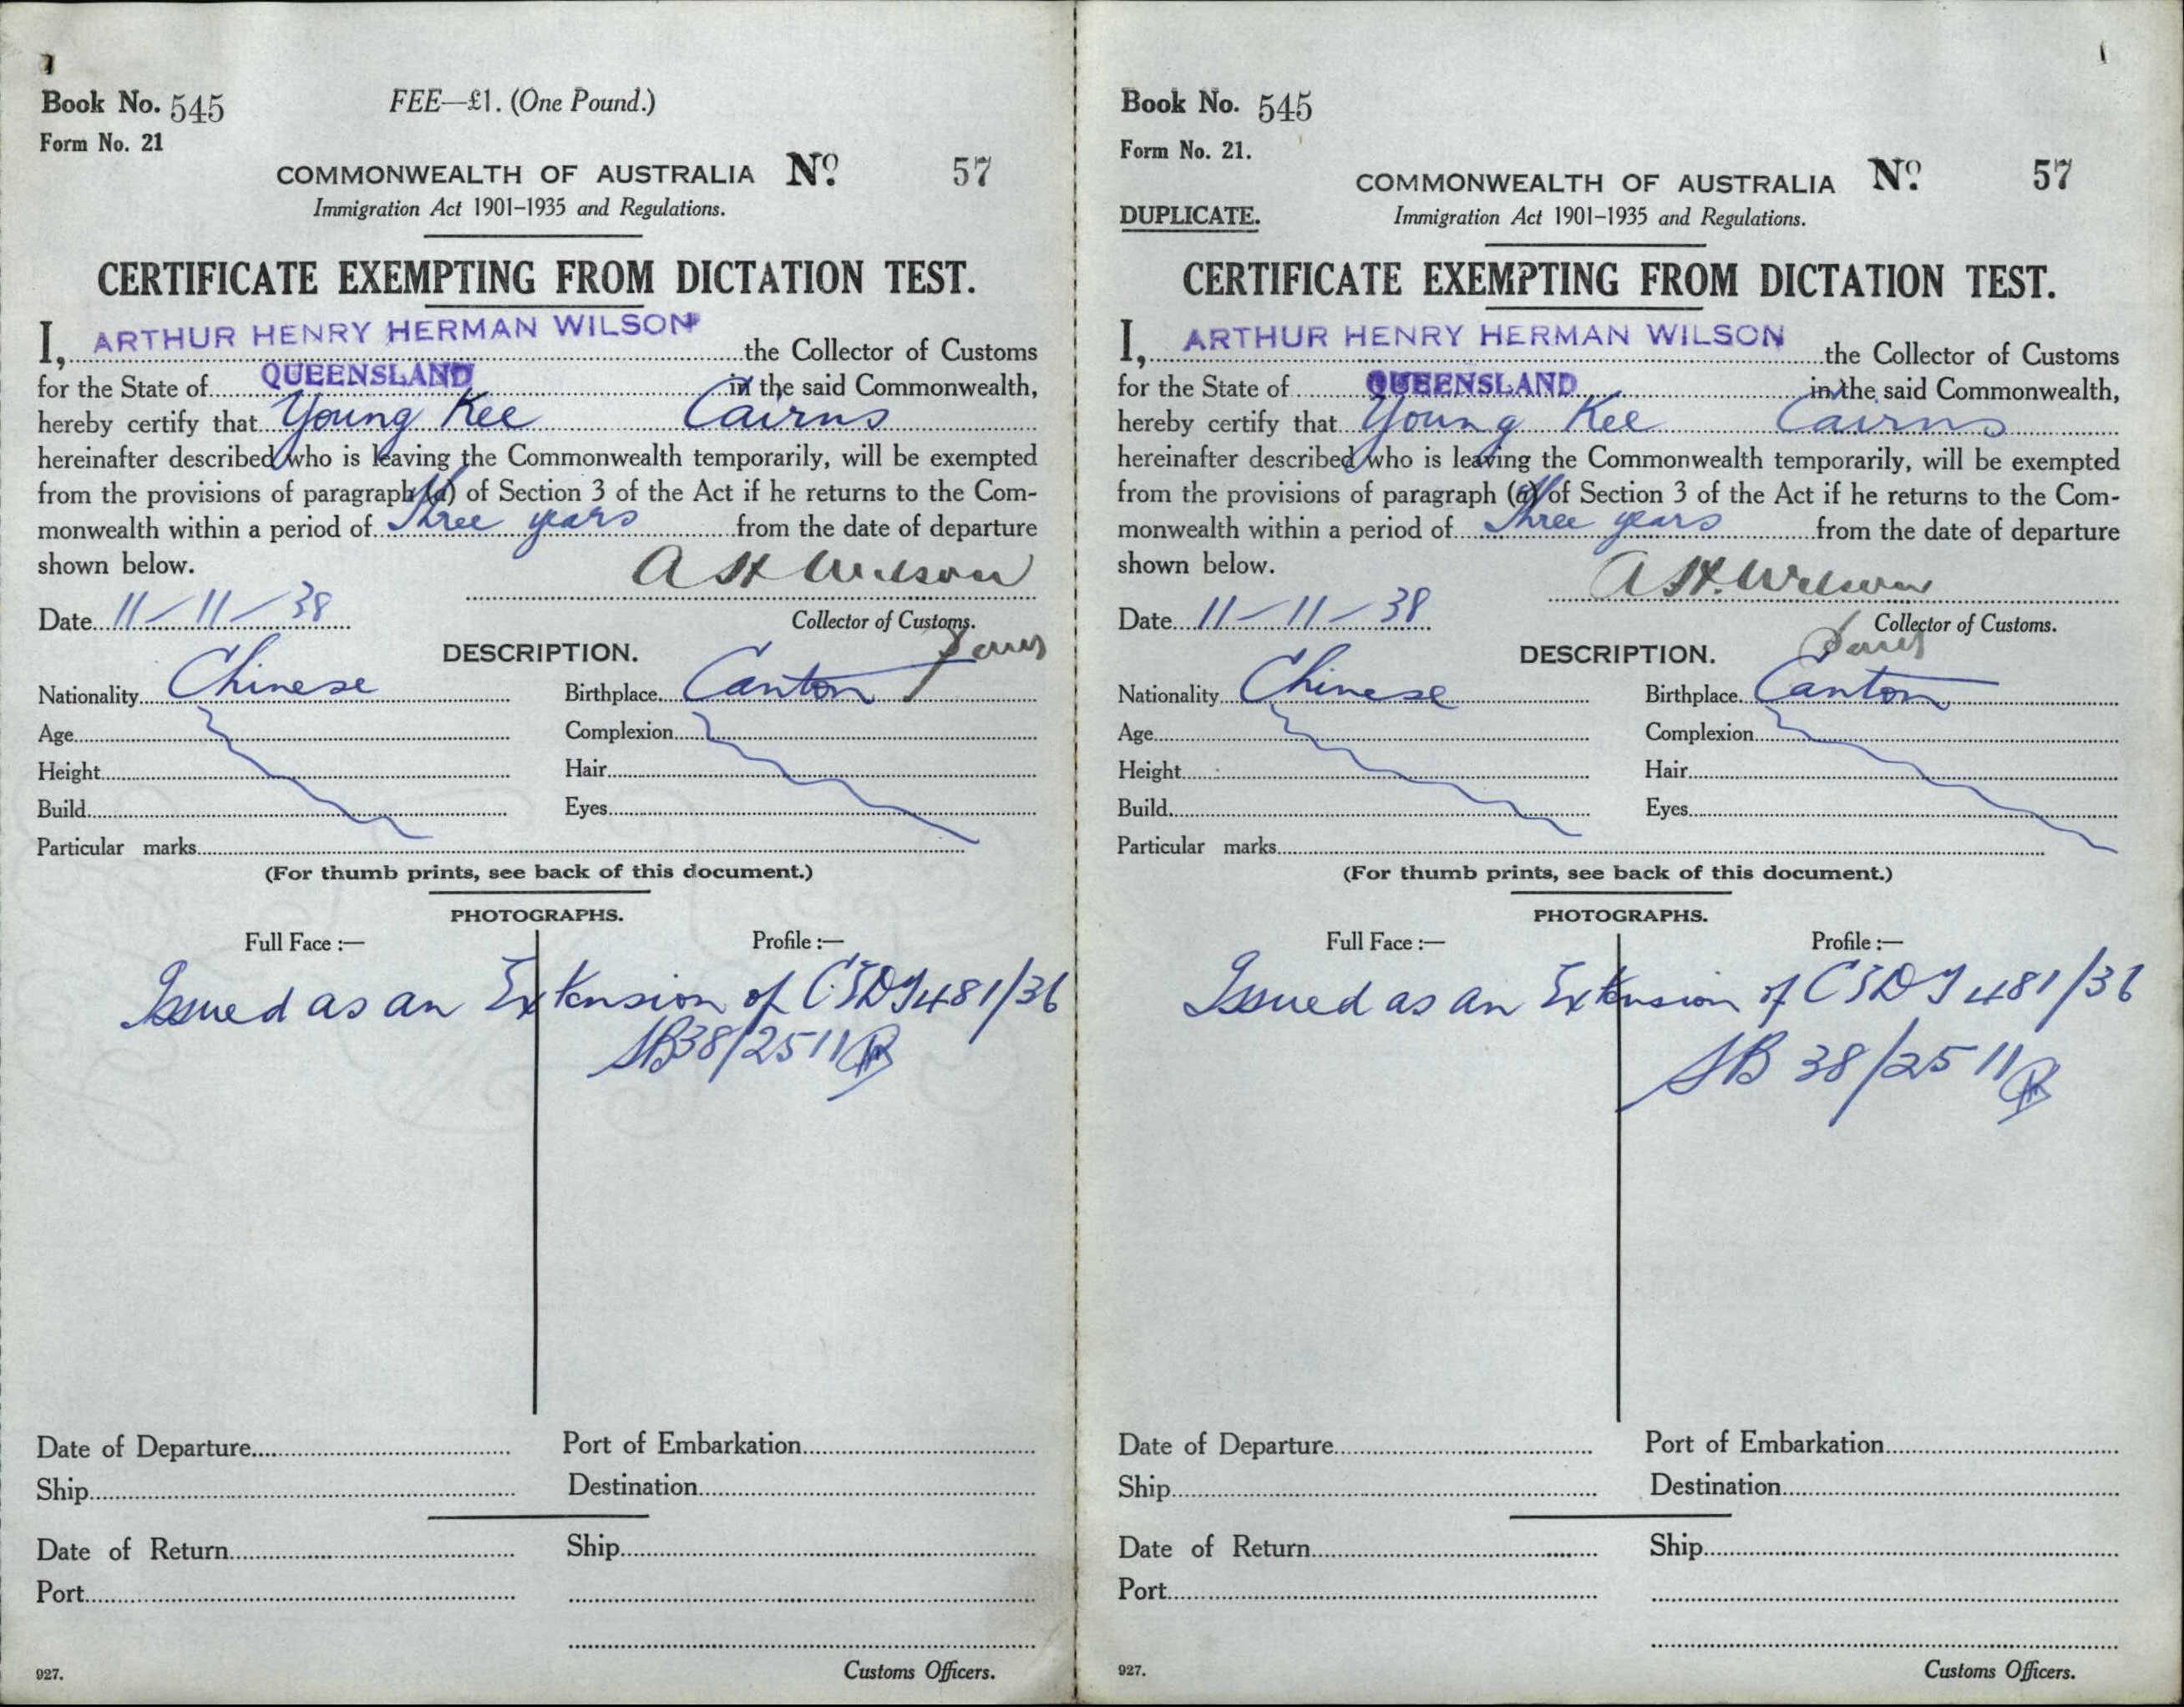 Book No. 545
FEE—£1. (One Pound.)
Form No. 21
COMMONWEALTH OF AUSTRALIA No. 57
Immigration Act 1901–1935 and Regulations.
CERTIFICATE EXEMPTING FROM DICTATION TEST.
I, ARTHUR HENRY HERMAN WILSON the Collector of Customs
for the State of QUEENSLAND in the said Commonwealth,
hereby certify that Young Kee Cairns
hereinafter described who is leaving the Commonwealth temporarily, will be exempted
from the provisions of paragraph (a) of Section 3 of the Act if he returns to the Com-
monwealth within a period of Three years from the date of departure
shown below.
A H Wilson
Date 11–11–38
Collector of Customs.
DESCRIPTION.
Nationality Chinese Birthplace Canton
Age Complexion
Height Hair
Build Eyes
Particular marks
(For thumb prints, see back of this document.)
PHOTOGRAPHS.
Full Face :— Profile :—
Issued as an Extension of CEDT 481/36
38/2511
Date of Departure Port of Embarkation
Ship Destination
Date of Return Ship
Port
927. Customs Officers.
Book No. 545
Form No. 21.
COMMONWEALTH OF AUSTRALIA No. 57
DUPLICATE. Immigration Act 1901–1935 and Regulations.
CERTIFICATE EXEMPTING FROM DICTATION TEST.
I, ARTHUR HENRY HERMAN WILSON the Collector of Customs
for the State of QUEENSLAND in the said Commonwealth,
hereby certify that Young Kee Cairns
hereinafter described who is leaving the Commonwealth temporarily, will be exempted
from the provisions of paragraph (a) of Section 3 of the Act if he returns to the Com-
monwealth within a period of Three years from the date of departure
shown below.
A H. Wilson
Date 11–11–38
Collector of Customs.
DESCRIPTION.
Nationality Chinese Birthplace Canton
Age Complexion
Height Hair
Build Eyes
Particular marks
(For thumb prints, see back of this document.)
PHOTOGRAPHS.
Full Face :— Profile :—
Issued as an Extension of CEDT 481/36
38/2511
Date of Departure Port of Embarkation
Ship Destination
Date of Return Ship
Port
927. Customs Officers.